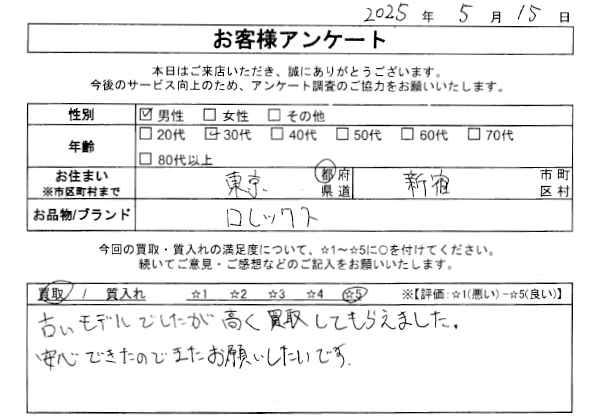 2025 年 5 月 15 日
お客様アンケート
本日はご来店いただき、誠にありがとうございます。
今後のサービス向上のため、アンケート調査のご協力をお願いいたします。
性別 ☑ 男性 □ 女性 □ その他
年齢 □ 20代 ☑ 30代 □ 40代 □ 50代 □ 60代 □ 70代
□ 80代以上
お住まい ※市区町村まで 東京 都府県道 新宿 市町区村
お品物/ブランド ロレックス
今回の買取・質入れの満足度について、☆1～☆5に○を付けてください。
続いてご意見・ご感想などのご記入をお願いいたします。
買取 / 質入れ ☆1 ☆2 ☆3 ☆4 ☆5 ※【評価:☆1(悪い)-☆5(良い)】
古いモデルでしたが高く買取してもらえました。
安心できたのでまたお願いしたいです.